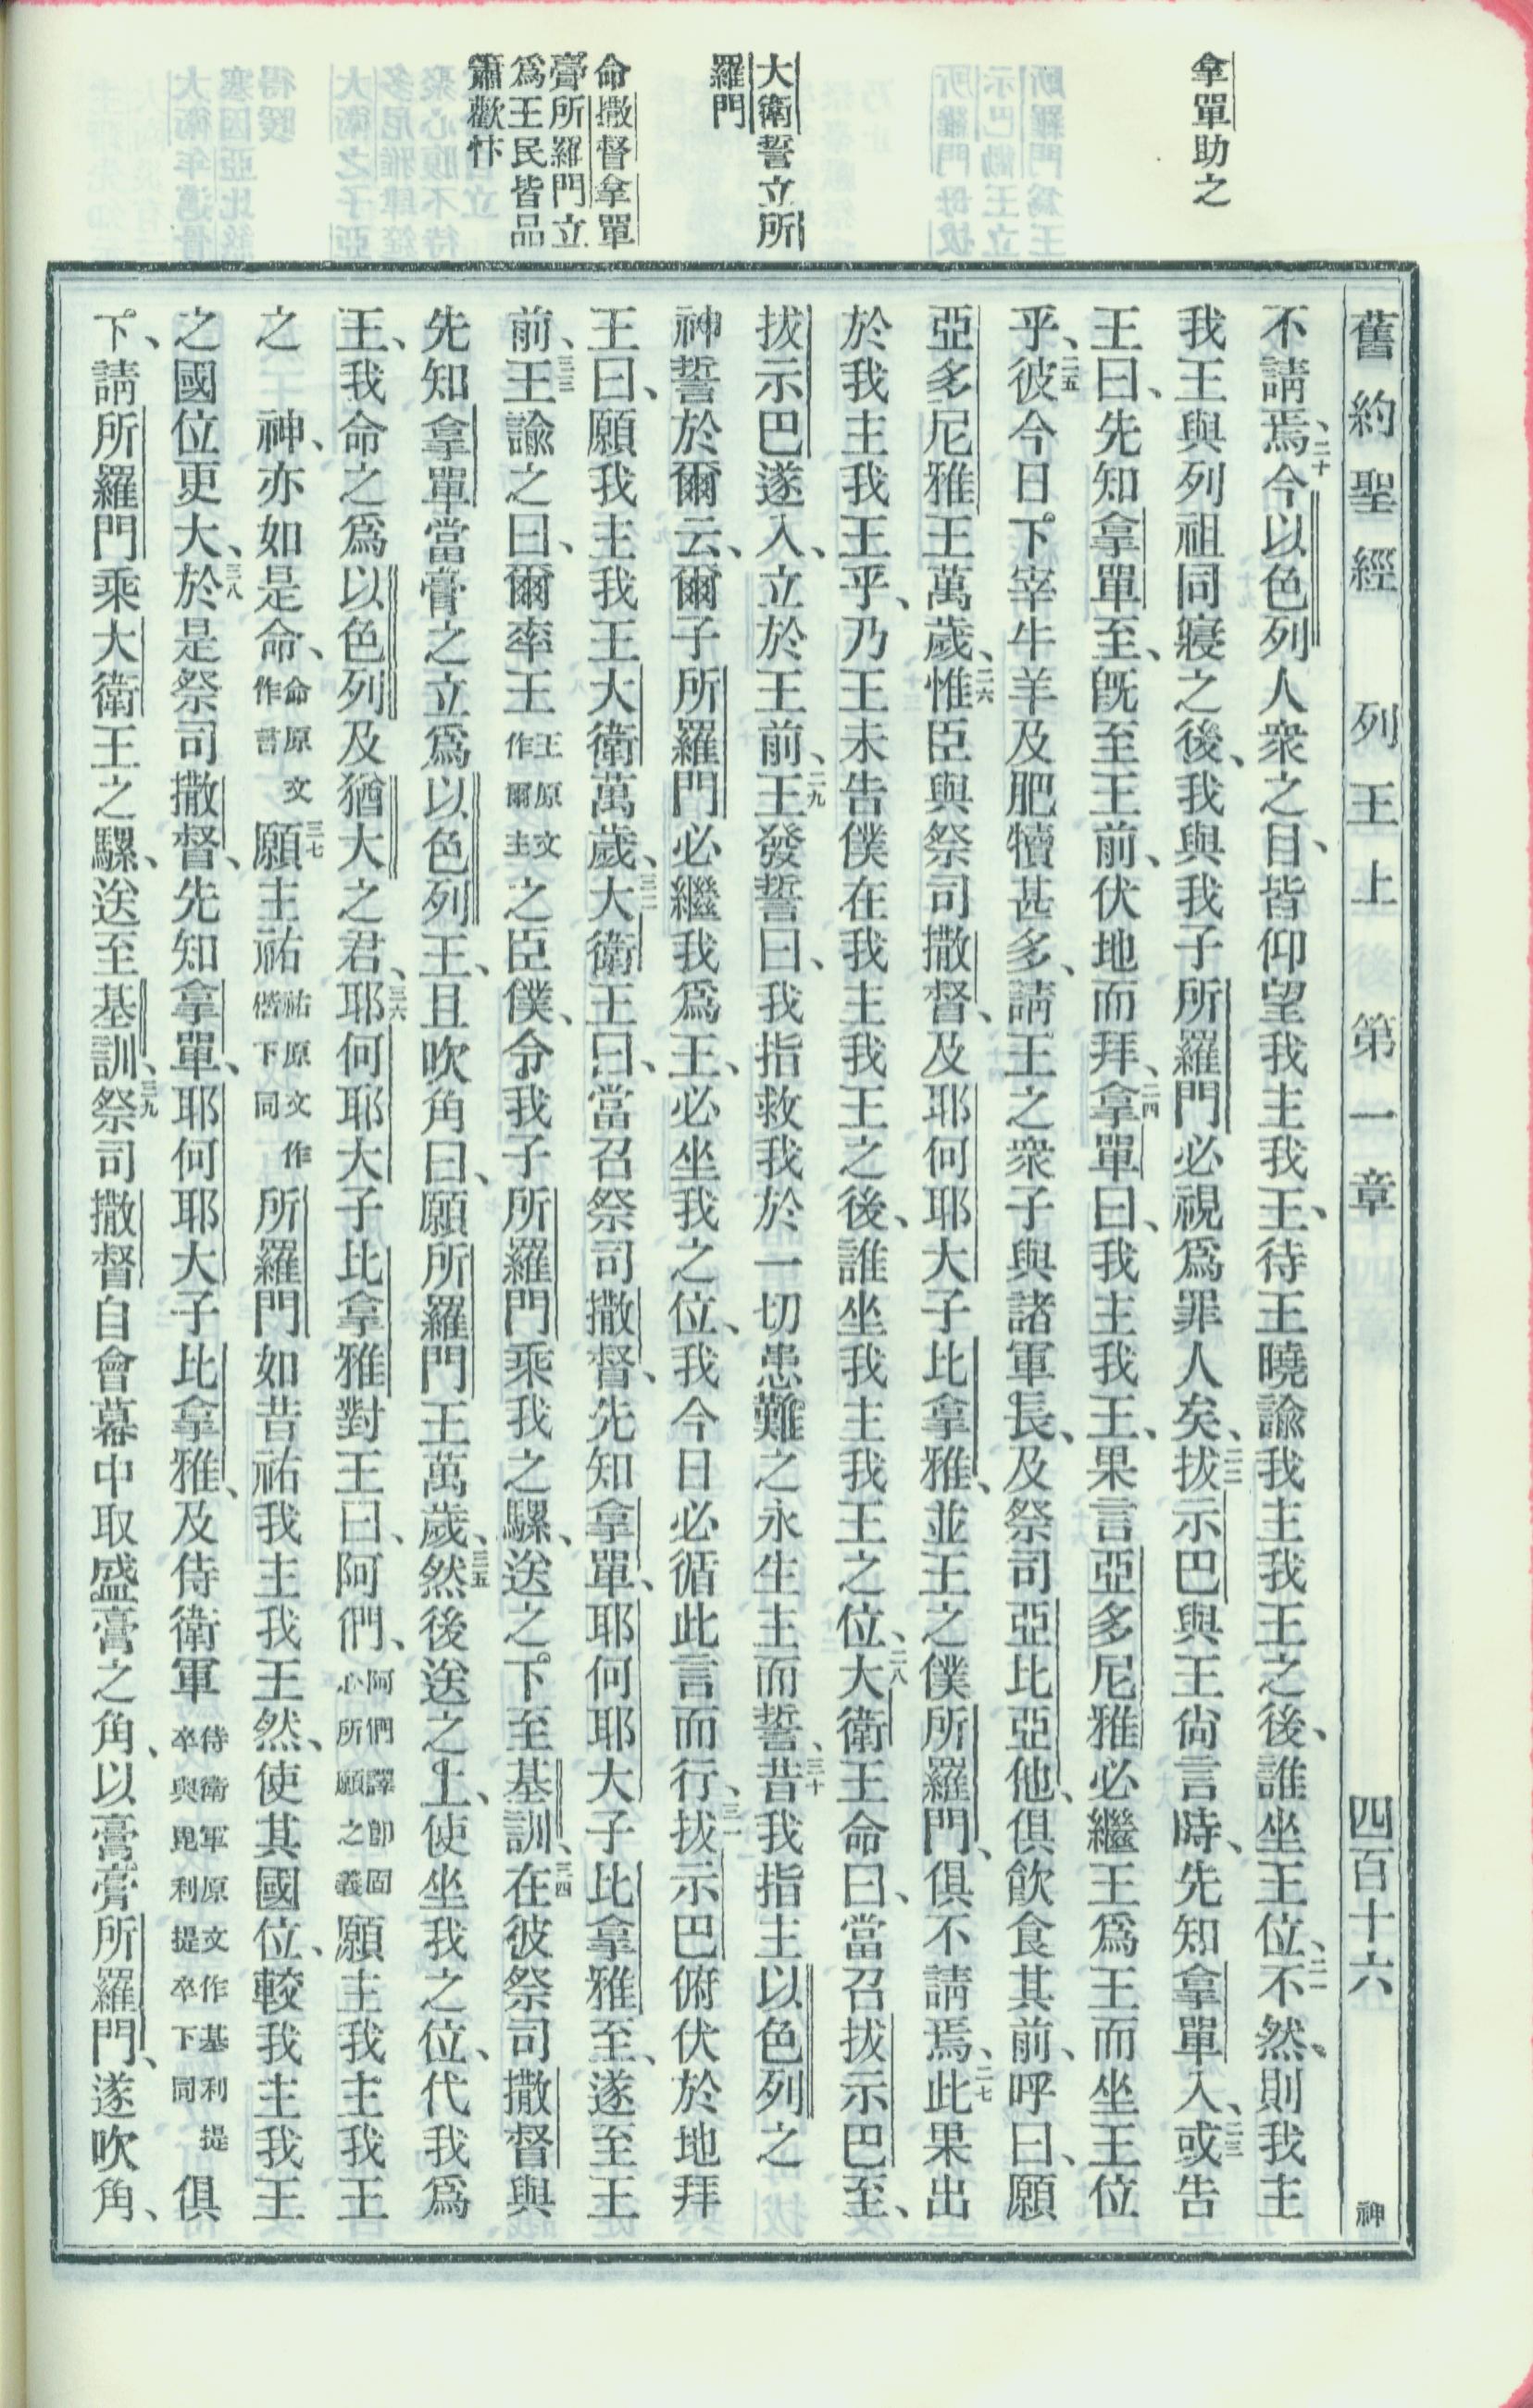 舊約聖經 列王上 第一章 四百十六 神
拿單助之
大衛誓立所
羅門
命撒督拿單
膏所羅門立
爲王民皆品
簫歡忭
不請焉、二十今以色列人衆之目、皆仰望我主我王、待王曉諭我主我王之後、誰坐王位、二一不然、則我主
我王與列祖同寢之後、我與我子所羅門必視爲罪人矣、二二拔示巴與王尙言時、先知拿單入、二三或告
王曰、先知拿單至、旣至王前、伏地而拜、二四拿單曰、我主我王、果言亞多尼雅必繼王爲王而坐王位
乎、二五彼今日下宰牛羊及肥犢甚多、請王之衆子與諸軍長、及祭司亞比亞他、俱飮食其前、呼曰、願
亞多尼雅王萬歲、二六惟臣與祭司撒督、及耶何耶大子比拿雅、並王之僕所羅門、俱不請焉、二七此果出
於我主我王乎、乃王未告僕在我主我王之後、誰坐我主我王之位、二八大衛王命曰、當召拔示巴至、
拔示巴遂入、立於王前、二九王發誓曰、我指救我於一切患難之永生主而誓、三十昔我指主以色列之
神誓於爾云、爾子所羅門必繼我爲王、必坐我之位、我今日必循此言而行、三一拔示巴俯伏於地拜
王曰、願我主我王大衛萬歲、三二大衛王曰、當召祭司撒督、先知拿單、耶何耶大子比拿雅至、遂至王
前、三三王諭之曰、爾率王王原文作爾主之臣僕、令我子所羅門乘我之騾、送之下至基訓、三四在彼祭司撒督與
先知拿單當膏之立爲以色列王、且吹角曰、願所羅門王萬歲、三五然後送之上、使坐我之位、代我爲
王、我命之爲以色列及猶大之君、三六耶何耶大子比拿雅對王曰、阿們、阿們譯卽固心所願之義願主我主我王
之 神、亦如是命、命原文作言三七願主祐祐原文作偕下同所羅門如昔祐我主我王然、使其國位、較我主我王
之國位更大、三八於是祭司撒督、先知拿單、耶何耶大子比拿雅、及侍衛軍侍衛軍原文作基利提卒與毘利提卒下同俱
下、請所羅門乘大衛王之騾、送至基訓、三九祭司撒督自會幕中取盛膏之角、以膏膏所羅門、遂吹角、